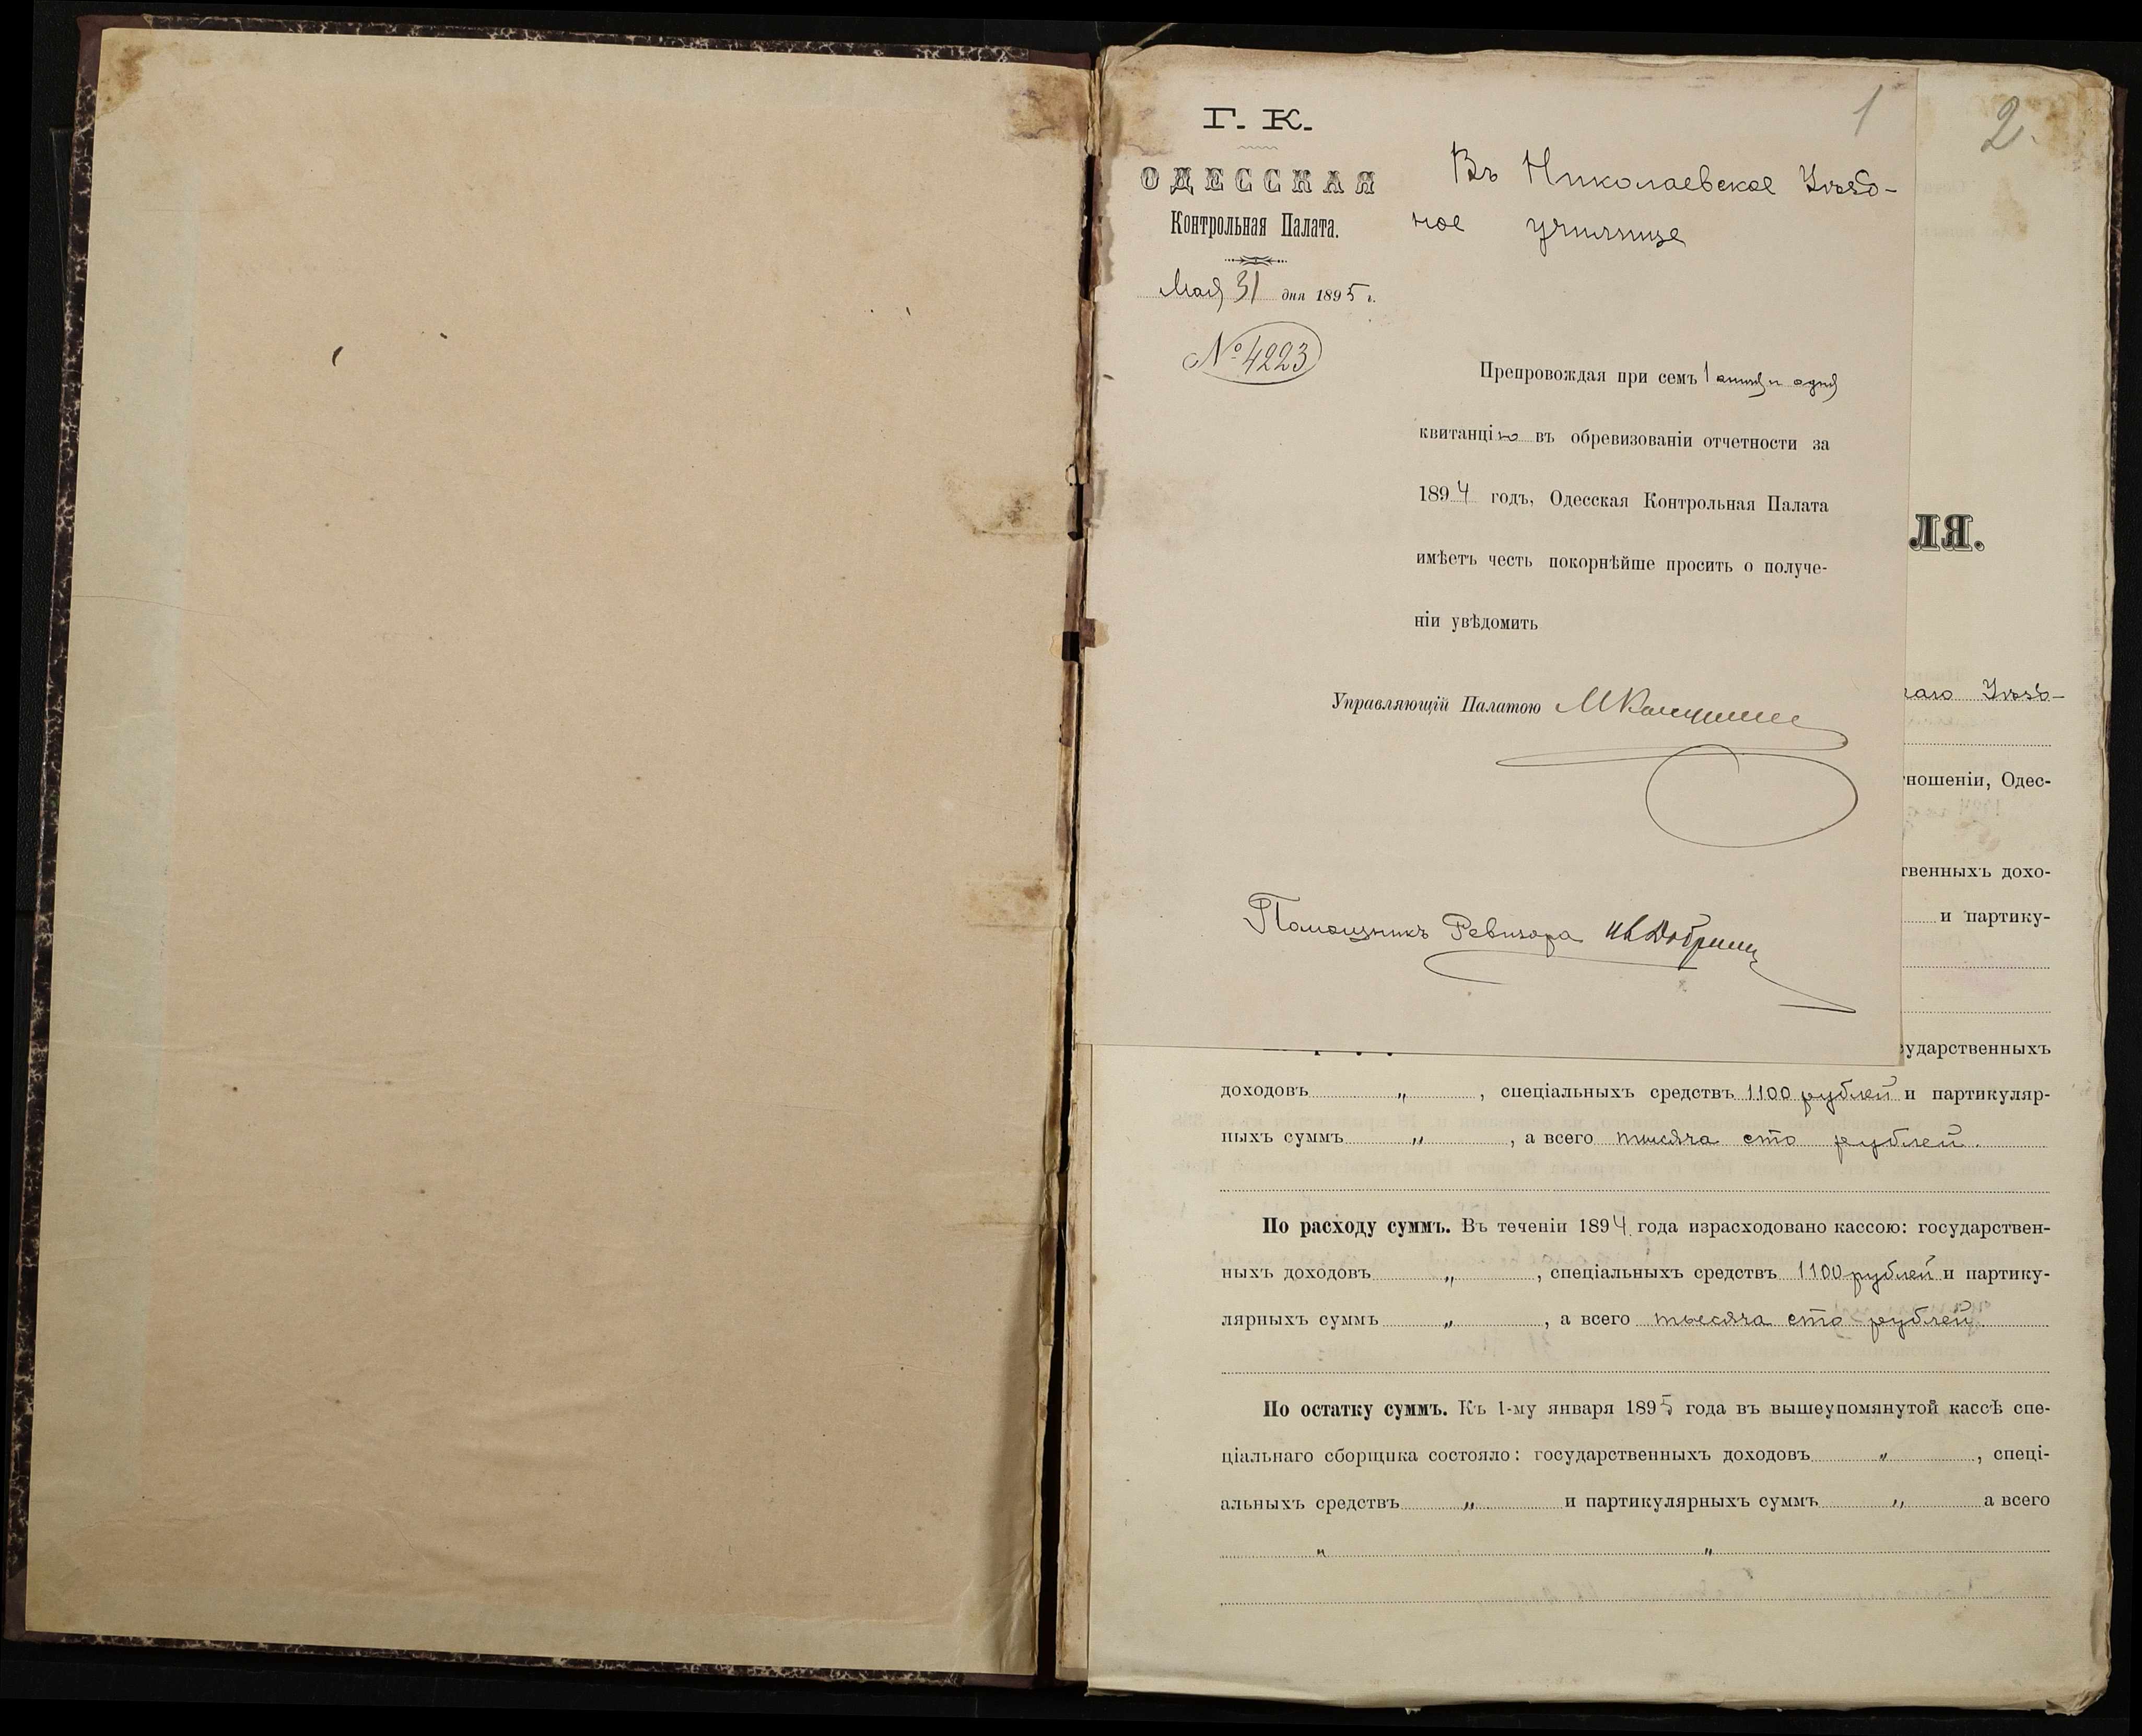 1
2.
Г. К.
ОДЕССКАЯ
Контрольная Палата.
Мая 31 дня 1895 г.
№ 4223
Въ Николаевское Уѣзд-
ное училище
Препровождая при семъ 1 и одну
квитанцію въ обревизованіи отчетности за
1894 годъ, Одесская Контрольная Палата
имѣетъ честь покорнѣйше просить о получе-
ніи увѣдомить
Управляющій Палатою
Помощникъ Ревизора
ЛЯ.
Уѣзд-
ношеніи, Одес-
твенныхъ дохо-
и партику-
ударственныхъ
доходовъ „ , спеціальныхъ средствъ 1100 рублей и партикуляр-
ныхъ суммъ „ , а всего тысяча сто рублей.
По расходу суммъ. Въ теченіи 1894 года израсходовано кассою: государствен-
ныхъ доходовъ „ , спеціальныхъ средствъ 1100 рублей и партику-
лярныхъ суммъ „ , а всего тысяча сто рублей
По остатку суммъ. Къ 1-му января 1895 года въ вышеупомянутой кассѣ спе-
ціальнаго сборщика состояло: государственныхъ доходовъ „ , спеці-
альныхъ средствъ „ и партикулярныхъ суммъ „ а всего
„ „